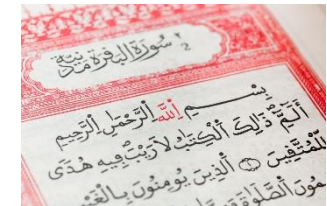 سورة البقرة مدنية
بِسْمِ اللَّهِ الرَّحْمَٰنِ الرَّحِيمِ
الٓمٓ ذَٰلِكَ الْكِتَابُ لَا رَيْبَ فِيهِ هُدًى
لِلْمُتَّقِينَ الَّذِينَ يُؤْمِنُونَ بِالْغَيْبِ
الصَّلَوٰةَ